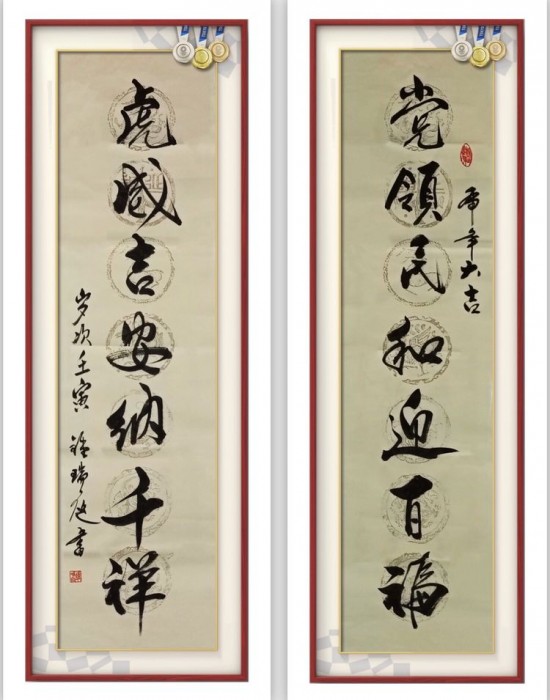 党領民和迎百福
虎年大吉
虎威吉安纳千祥
岁次壬寅 瑞 书